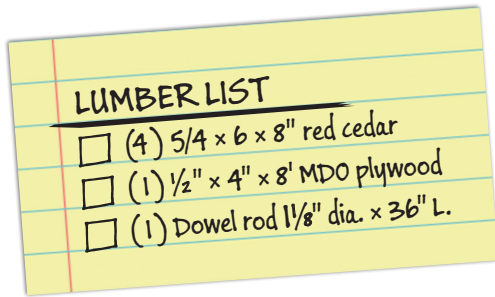 LUMBER LIST
(4) 5/4 × 6 × 8" red cedar
(1) 1/2" × 4" × 8' MDO plywood
(1) Dowel rod 1 1/8" dia. × 36" L.